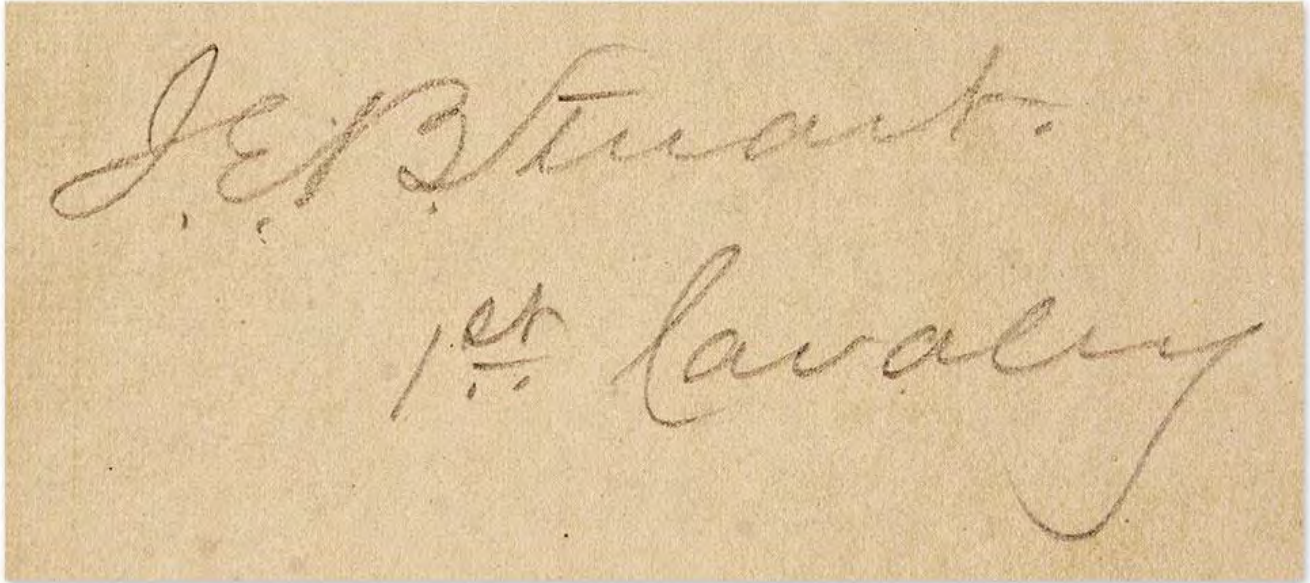 J.E.B Stuart.
1st Cavalry